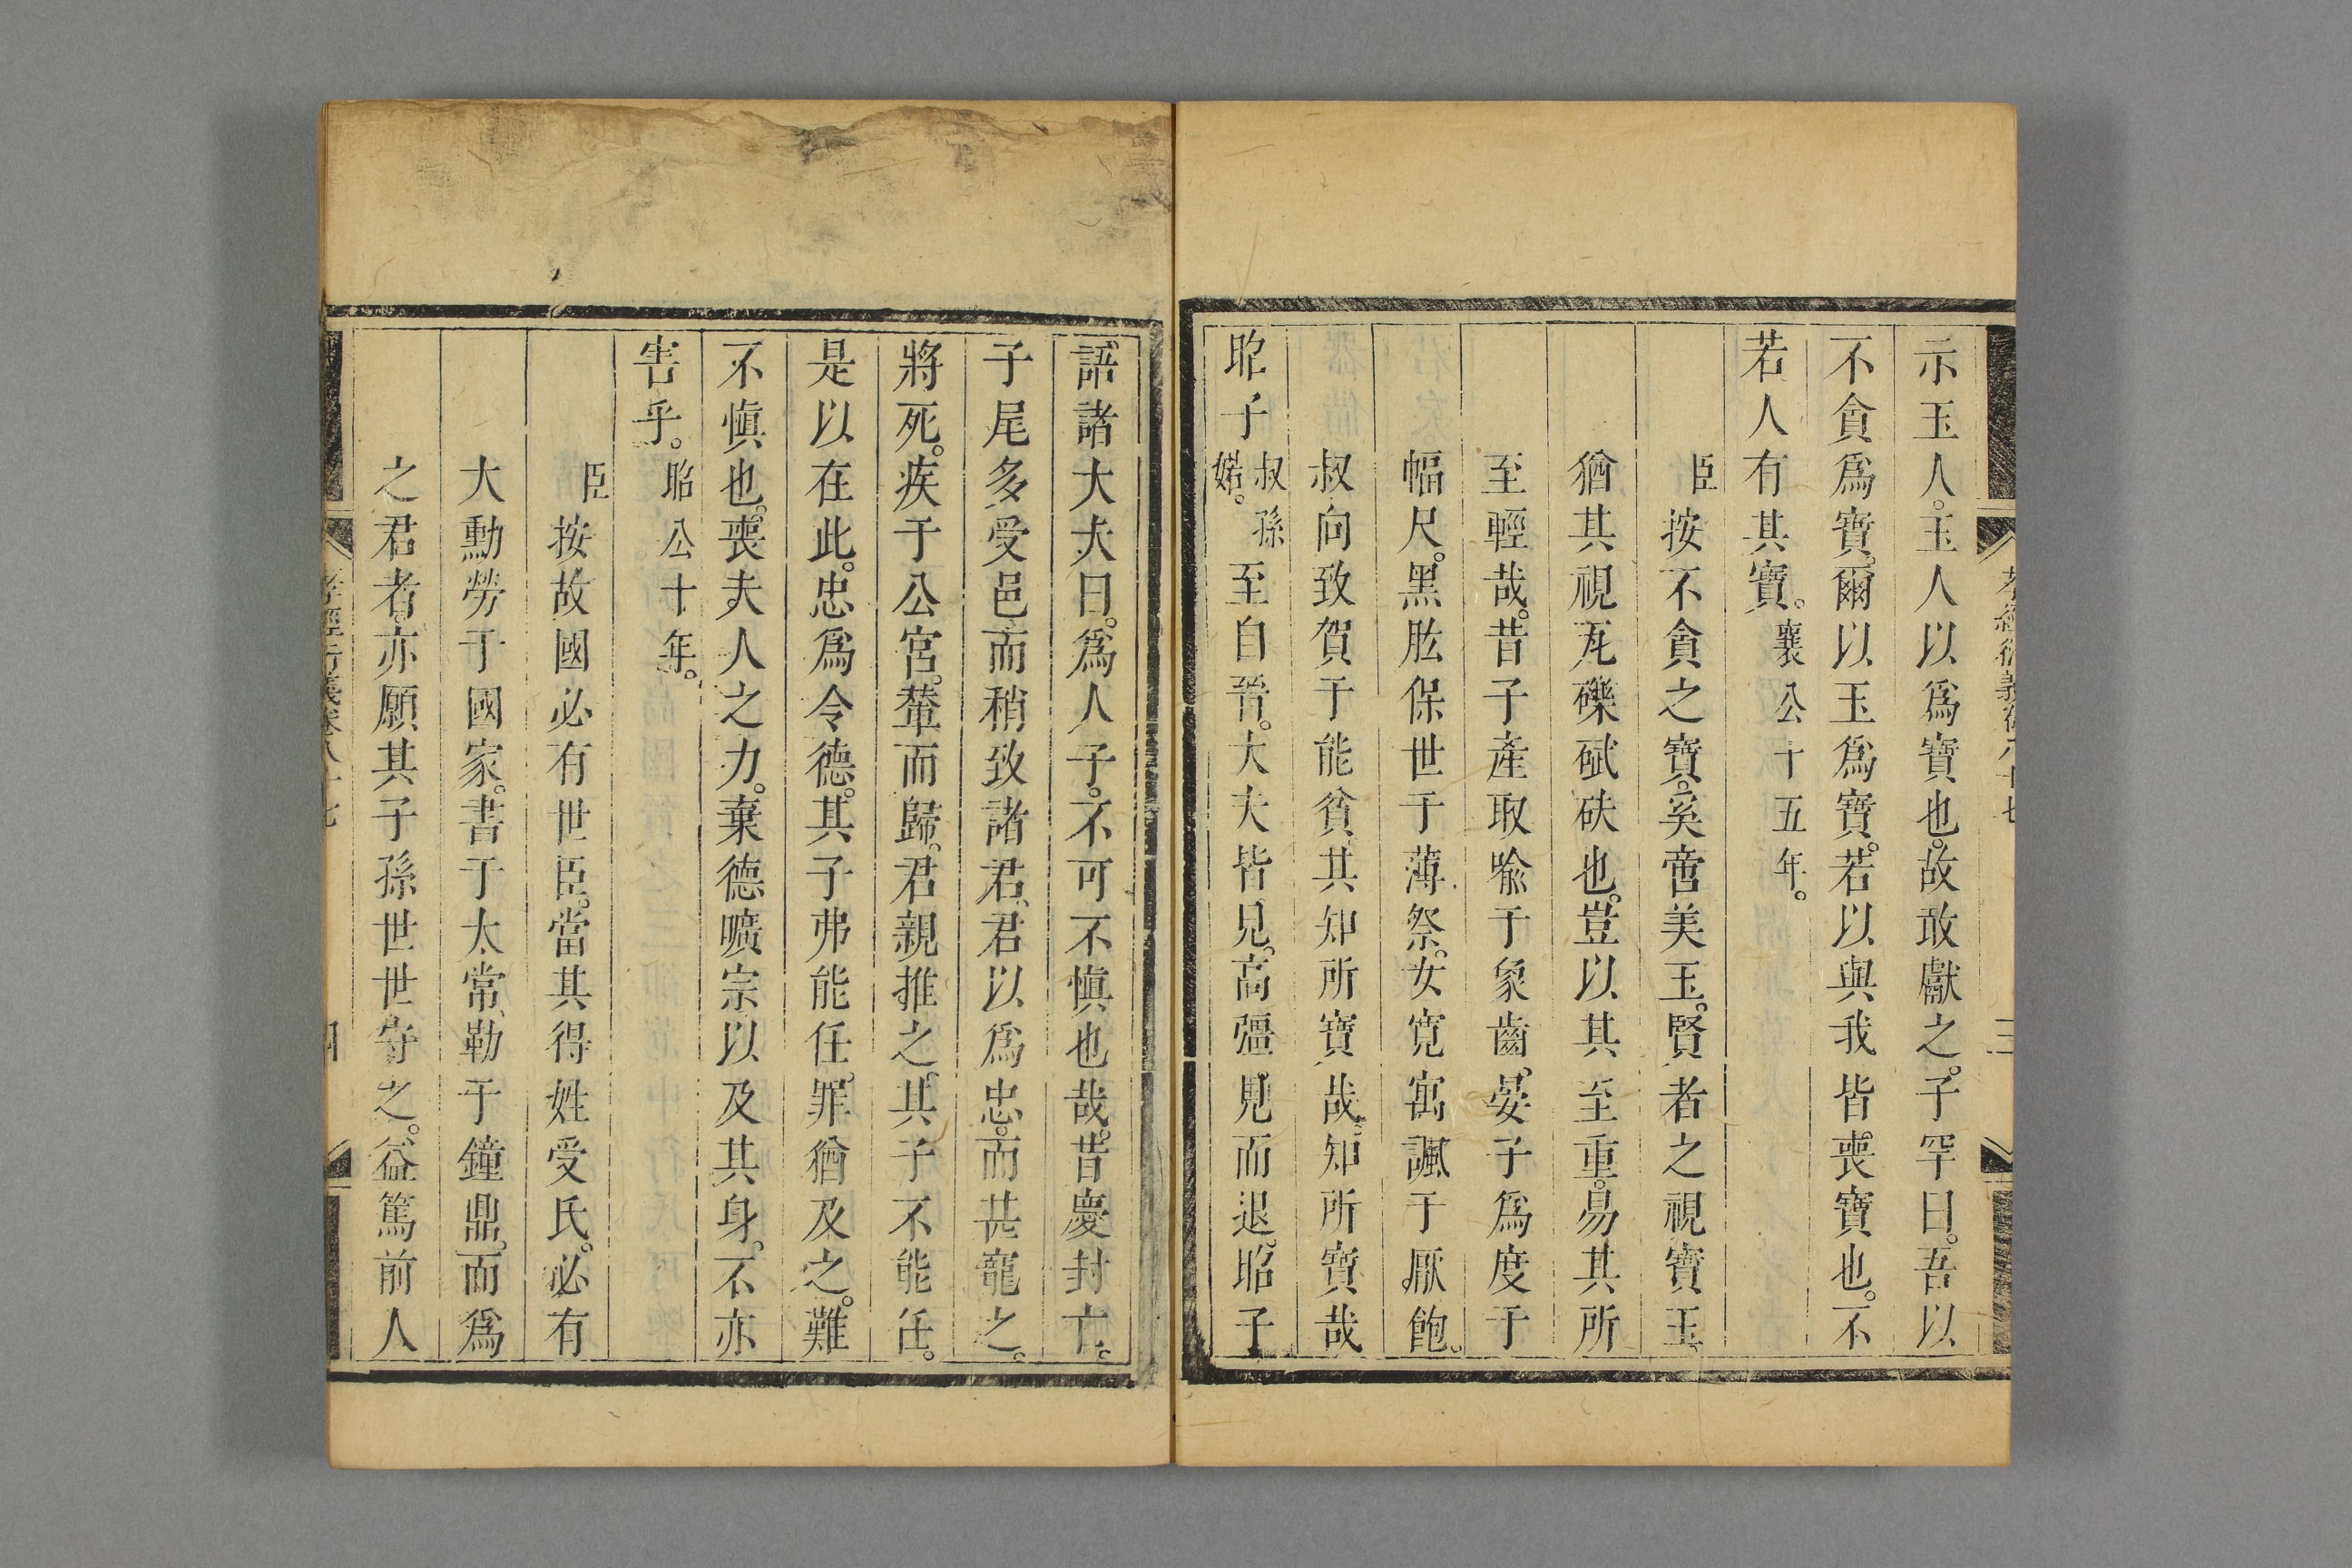 示玉人。玉人以爲寶也。故敢獻之。子罕曰。吾以
不貪爲寶。爾以玉爲寶。若以與我皆喪寶也。不
若人有其寶。襄公十五年。
臣按不貪之寶。奚啻美玉。賢者之視寶玉
猶其視瓦礫碔砆也。豈以其至重。易其所
至輕哉。昔子產取喩于象齒。晏子爲度于
幅尺。黑肱保世于薄祭。女寛寓諷于厭飽。
叔向致賀于能貧。其知所寶哉。知所寶哉
昭子叔孫婼。至自晉。大夫皆見。高彊見而退。昭子
語諸大夫曰。爲人子。不可不愼也哉。昔慶封亡。
子尾多受邑而稍致諸君。君以爲忠。而甚寵之。
將死。疾于公宮。輦而歸。君親推之。其子不能任。
是以在此。忠爲令德。其子弗能任。罪猶及之。難
不愼也。喪夫人之力。棄德曠宗以及其身。不亦
害乎。昭公十年。
臣按故國必有世臣。當其得姓受氏。必有
大勳勞于國家。書于太常。勒于鐘鼎。而爲
之君者。亦願其子孫世世守之。益篤前人